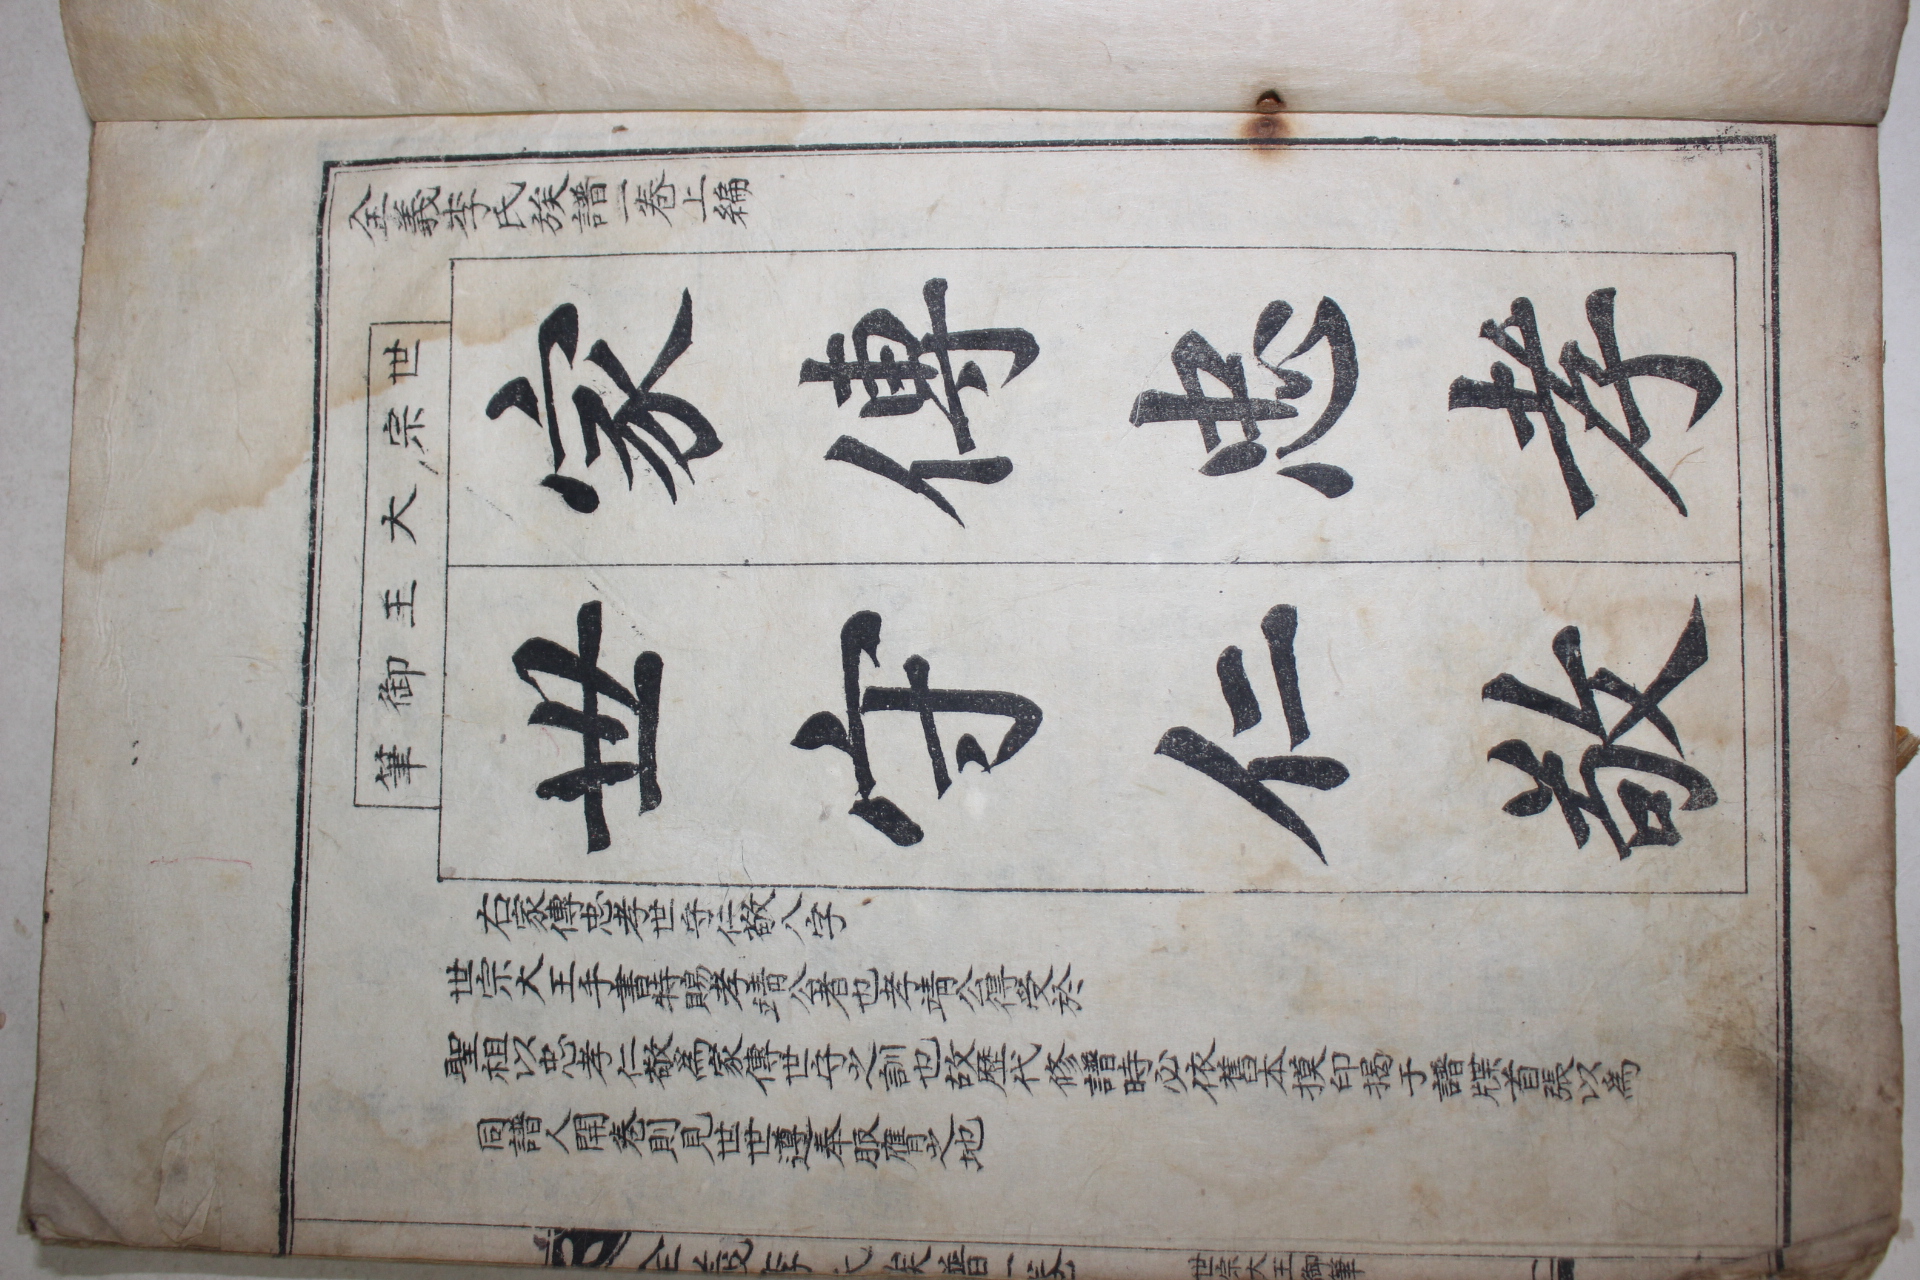 全義李氏族譜一卷上編
世宗大王御筆
家傳忠孝
世守仁敬
右家傳忠孝世守仁敬八字
世宗大王手書特賜孝靖公者也孝靖公得受於
聖祖以忠孝仁敬爲家傳世守之訓也故歷代修譜時必依舊本摸印揭于譜牒首張以爲
同譜人開卷則見世世遵奉服膺之地
全義李氏族譜一卷
世宗大王御筆